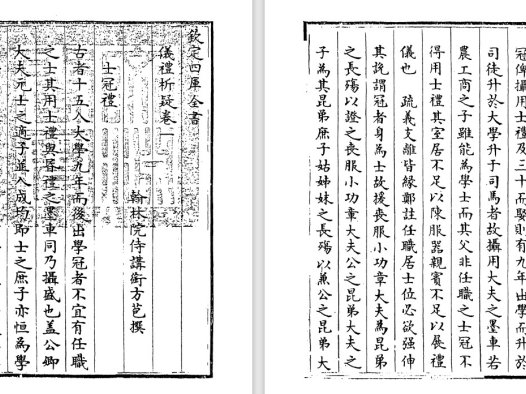 欽定四庫全書
儀禮析疑卷一
翰林院侍講銜方苞撰
士冠禮
古者十五入大學九年而後出學冠者不宜有任職
之士其用士禮與昏禮之墨車同乃攝盛也蓋公卿
大夫元士之適子並入成均即士之庶子亦恒為學
冠俾攝用士禮及三十而娶則有九年出學而升於
司徒升於大學升于司馬者故攝用大夫之墨車若
農工商之子雖能為學士而其父非任職之士冠不
得用士禮其室居不足以陳服器親賓不足以展禮
儀也 疏義支離皆緣鄭註任職居士位必欲強伸
其說謂冠者身為士故援喪服小功章大夫為昆弟
之長殤以證之喪服小功章大夫公之昆弟大夫之
子為其昆弟庶子姑姊妹之長殤以兼公之昆弟大